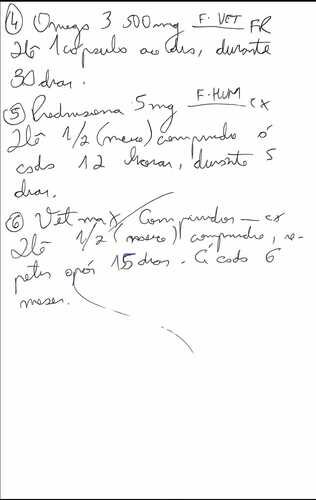 ④ Omega 3 500mg F. VET FR
Dê 1 capsula ao dia, durante
30 dias.
⑤ Prednisona 5mg F. HUM CX
Dê 1/2 (meio) comprimido a
cada 12 horas, durante 5
dias.
⑥ Vetmax Comprimidos — cx
Dê 1/2 (meio) comprimido, re-
petir após 15 dias. a cada 6
meses.